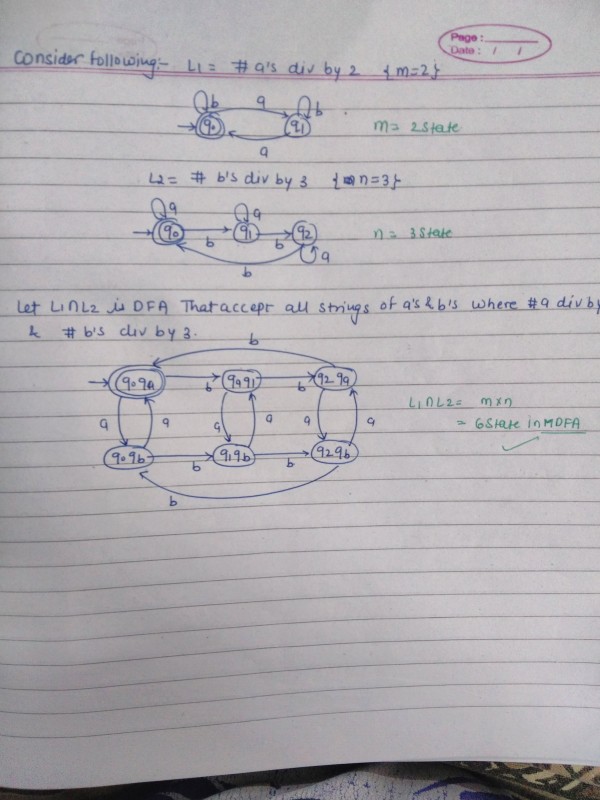 Page:
Date: / /
Consider following:- L1 = # a's div by 2 {m=2}
b a b
q0 q1
a
m = 2 State
L2 = # b's div by 3 { n=3}
a a
q0 b q1 b q2 a
b
n = 3 State
Let L1∩L2 is DFA That accept all strings of a's & b's where # a div by
& # b's div by 3.
b
q0qa b qaq1 b q2qa
a a a a a a
q0qb b q1qb b q2qb
b
L1∩L2 = m×n
= 6 State in MDFA